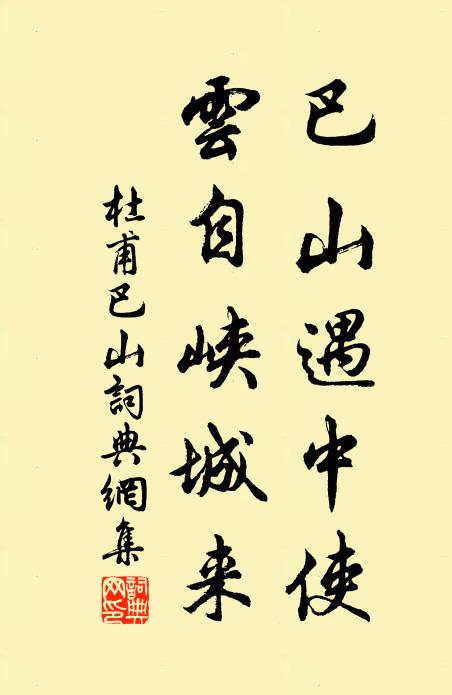 巴山遇中使
雲自峡城来
杜甫巴山詞典網集
詞典網印